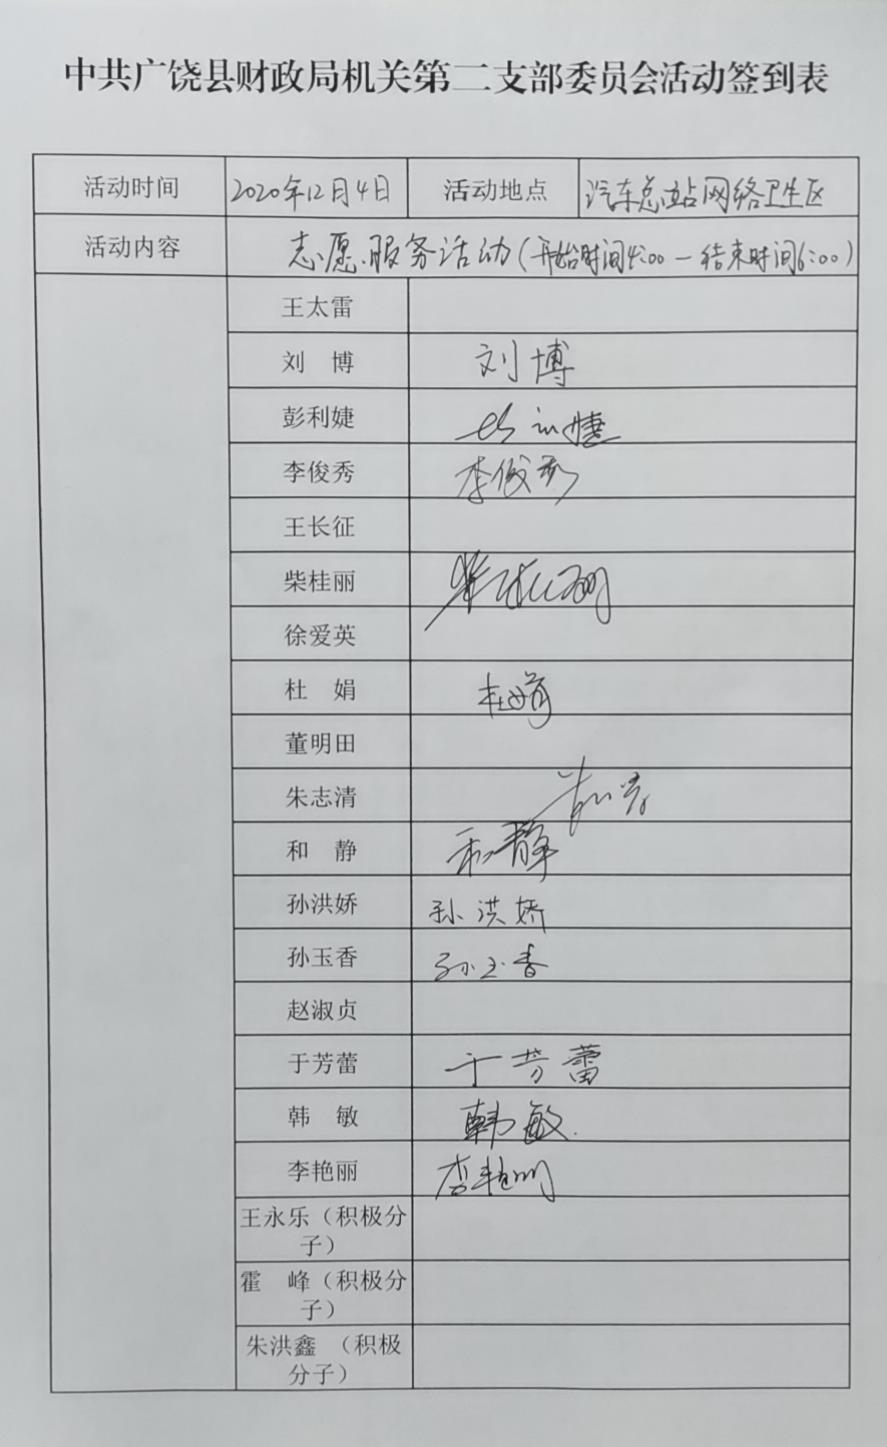 中共广饶县财政局机关第二支部委员会活动签到表
活动时间 2020年12月4日 活动地点 汽车总站网络卫生区
活动内容 志愿服务活动(开始时间4:00—结束时间6:00)
王太雷
刘 博 刘博
彭利婕
李俊秀 李俊秀
王长征
柴桂丽 柴桂丽
徐爱英
杜 娟 杜娟
董明田
朱志清
和 静 和静
孙洪娇 孙洪娇
孙玉香 孙玉香
赵淑贞
于芳蕾 于芳蕾
韩 敏 韩敏.
李艳丽 李艳丽
王永乐（积极分
子）
霍 峰（积极分
子）
朱洪鑫 （积极
分子）